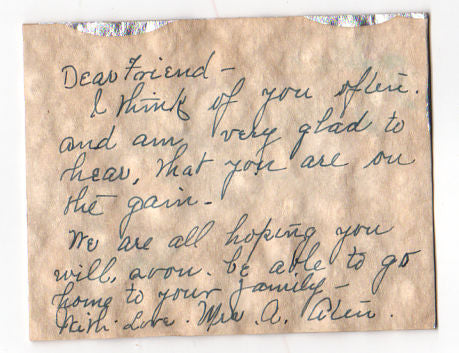 Dear Friend -
I think of you often.
and am very glad to
hear, that you are on
the gain -
We are all hoping you
will, soon. be able to go
home to your family -
With. Love. Mrs. A.